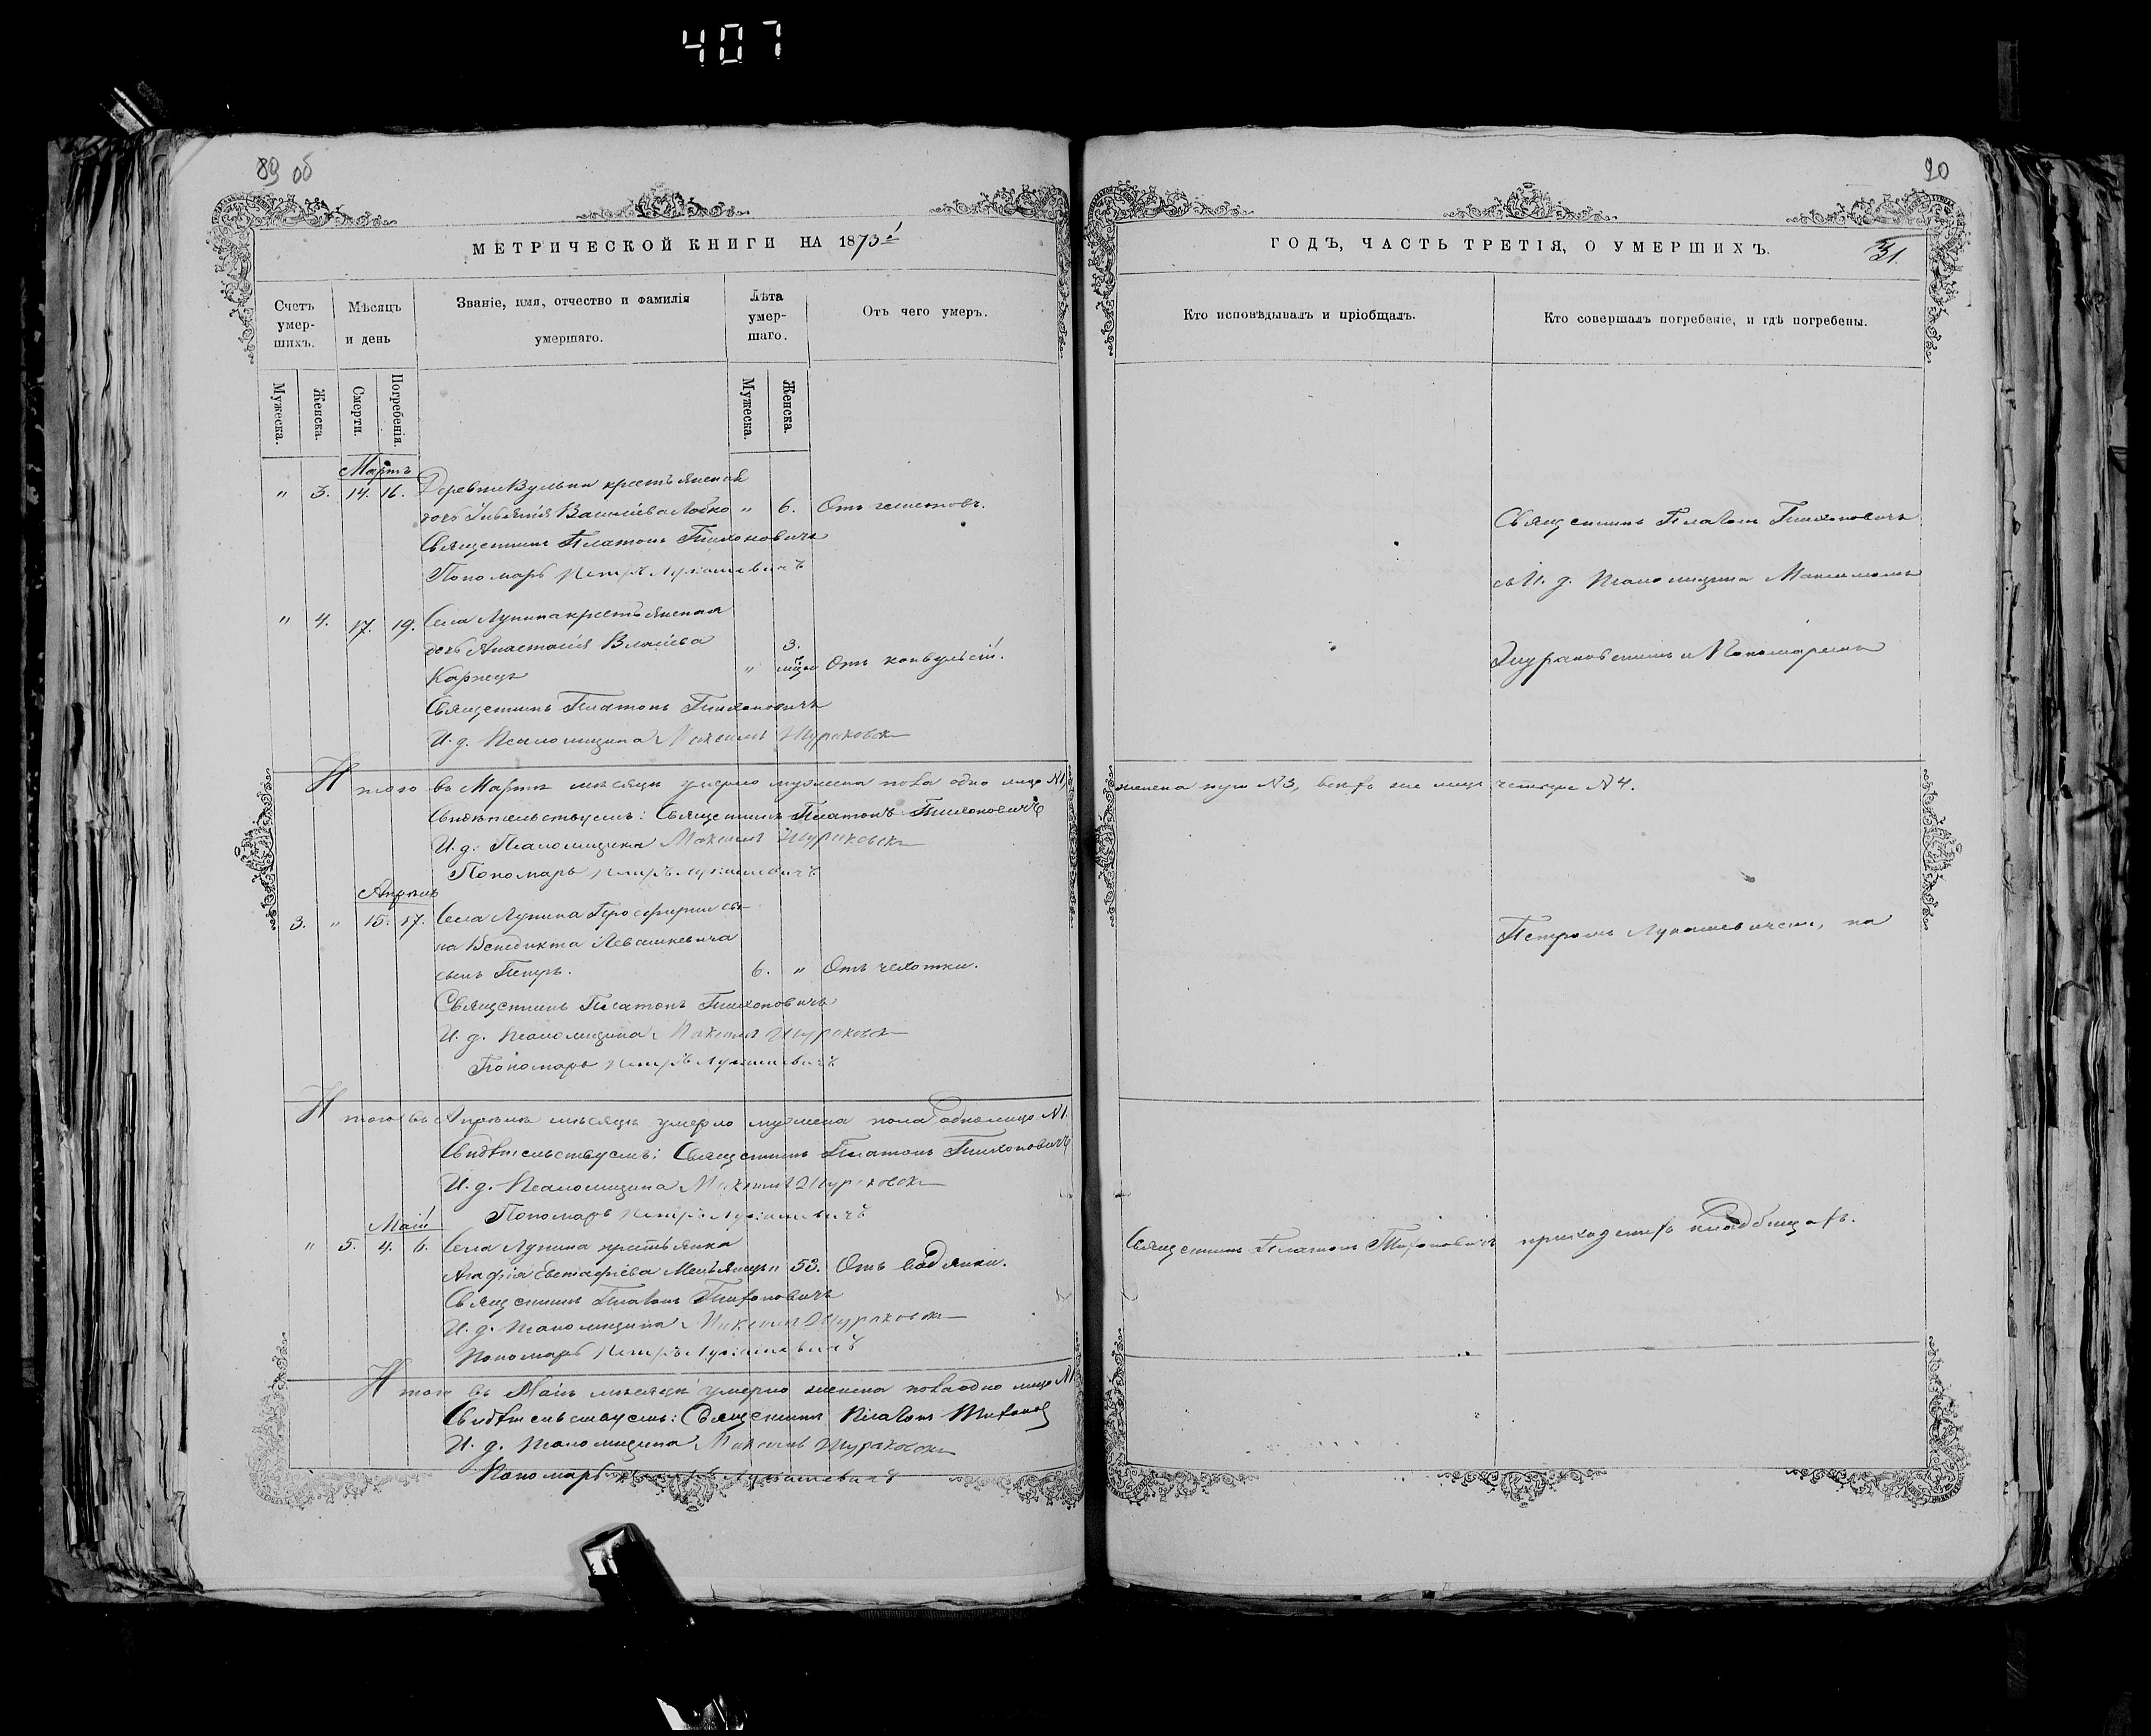 407
89 об
90
МЕТРИЧЕСКОЙ КНИГИ НА 1873й
ГОДЪ, ЧАСТЬ ТРЕТІЯ, О УМЕРШИХЪ.
31.
Счетъ умер-шихъ.
Мѣсяцъ и день
Званіе, имя, отчество и фамилія умершаго.
Лѣта умер-шаго.
Отъ чего умеръ.
Кто исповѣдывалъ и пріобщалъ.
Кто совершалъ погребеніе, и гдѣ погребены.
Мужеска.
Женска.
Смерти.
Погребенія.
Мужеска.
Женска.
Мартъ
" 3. 14. 16. Деревни Вульки крестьянская
дочь Василіева " 6. Отъ глистовъ.
Священникъ Платонъ Тихоновичъ
Священникъ Платонъ Тихоновичъ
Пономарь Петръ Лукашевичъ
съ И. д. Псаломщика Максимомъ
" 4. 17. 19. Села Лунина крестьянская
дочь Анастасія Власіева 3.
Карпецъ " мѣся Отъ конвульсій.
Жураковскимъ и Пономаремъ
Священникъ Платонъ Тихоновичъ
И. д. Псаломщика Максимъ Жураковск
Итого въ Мартѣ мѣсяцѣ умерло мужеска пола одно лице №1,
женска три №3, всѣхъ же лицъ четыре №4.
Свидѣтельствуемъ: Священникъ Платонъ Тихоновичъ
И. д. Псаломщика Максимъ Жураковск
Пономарь Петръ Лукашевичъ
Апрѣль
3. " 15. 17. Села Лунина сы-
на Венедикта Левашкевича
сынъ Петръ. 6. " Отъ чехотки.
Петромъ Лукашевичемъ, на
Священникъ Платонъ Тихоновичъ
И. д. Псаломщика Максимъ Жураковск
Пономарь Петръ Лукашевичъ
Итого въ Апрѣлѣ мѣсяцѣ умерло мужеска пола одно лице №1.
Свидѣтельствуемъ: Священникъ Платонъ Тихоновичъ
И. д. Псаломщика Максимъ Жураковск
Пономарь Петръ Лукашевичъ
Май
" 5. 4. 6. Села Лунина крестьянка
Агафія Евстафіева " 53. Отъ водянки.
Священникъ Платонъ Тихоновичъ
приходскихъ кладбищахъ.
Священникъ Платонъ Тихоновичъ
И. д. Псаломщика Максимъ Жураковск
Пономарь Петръ Лукашевичъ
Итого въ Маѣ мѣсяцѣ умерло женска пола одно лице №1
Свидѣтельствуемъ: Священникъ Платонъ Тихонов
И. д. Псаломщика Максимъ Жураковск
Пономарь Петръ Лукашевичъ